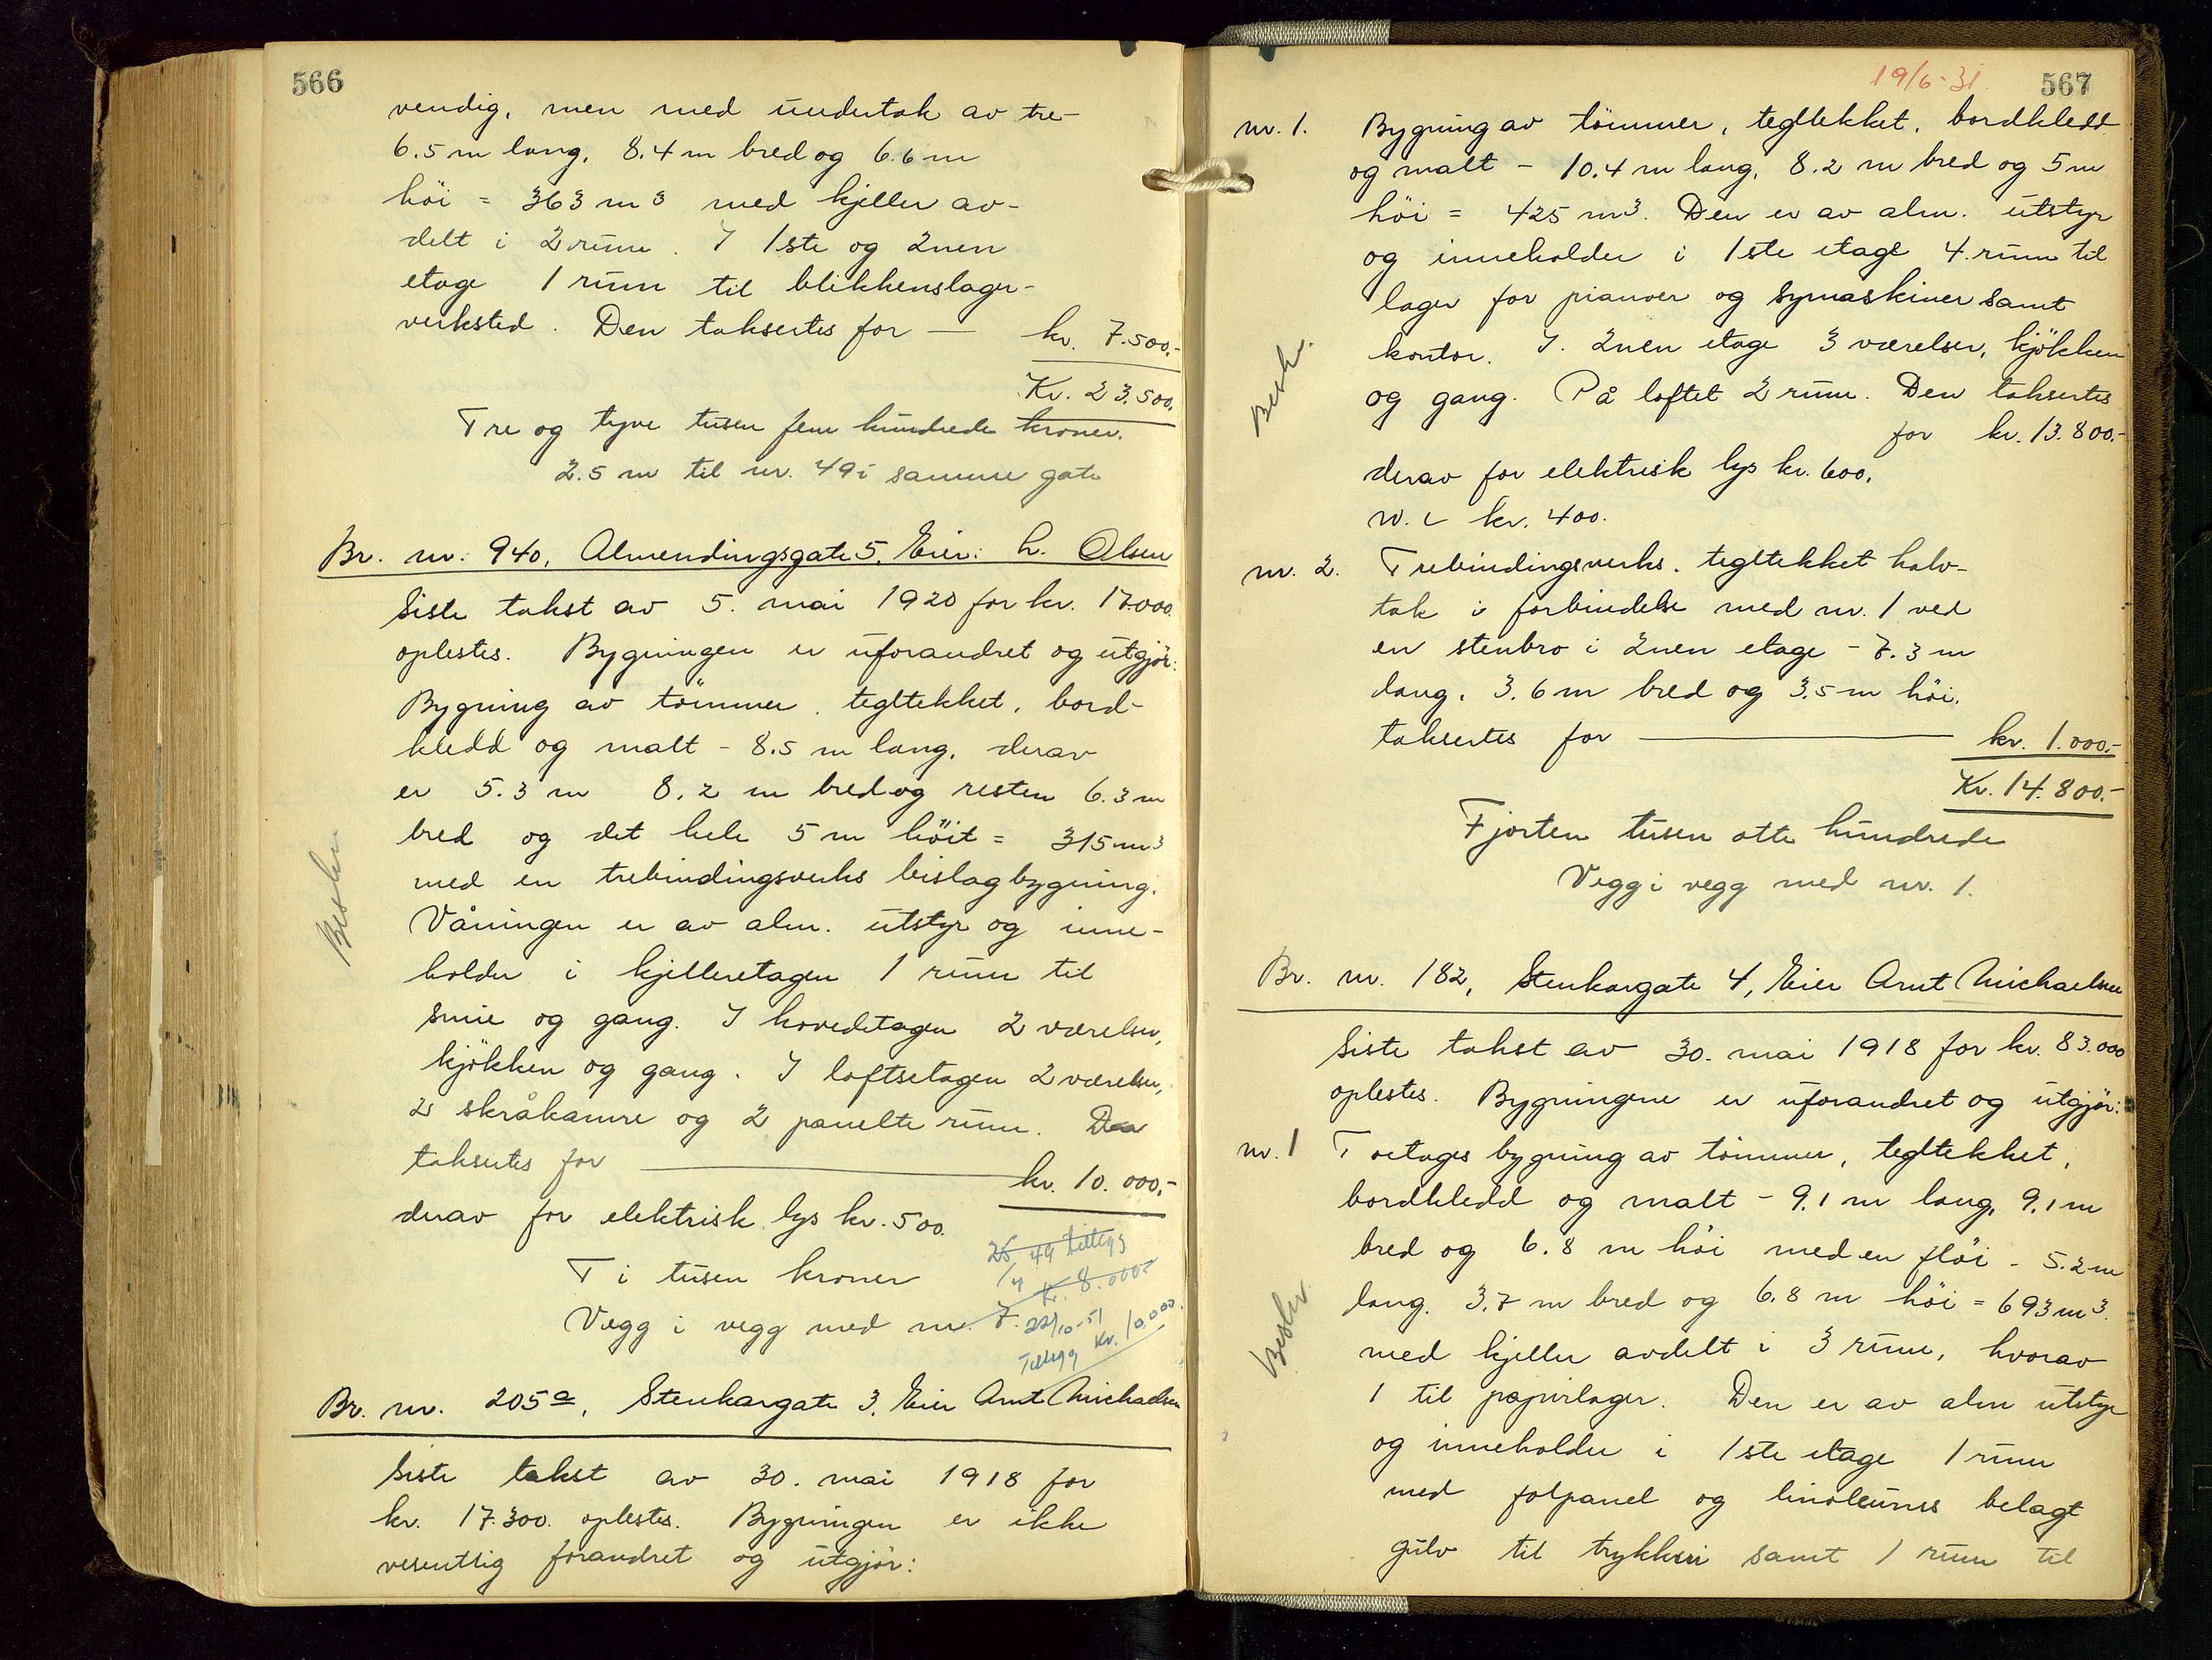 566
vendig, men med undertak av tre-
6.5 m lang, 8.4 m bred og 6.6 m
höi = 363 m3 med kjeller av-
delt i 2 rum. I 1ste og 2nen
etage 1 rum til blikkenslager-
verksted. Den taksertes for — kr. 7.500.-
Kr. 23.500.
Tre og tyve tusen fem hundrede kroner.
2.5 m til nr. 49 i samme gate
Br. nr. 940, Almendingsgate 5, Eier: h. Olsen
Siste takst av 5. mai 1920 for kr. 17.000.
oplestes. Bygningen er uforandret og utgjör:
Bygning av tömmer, tegltekket, bord-
kledd og malt - 8.5 m lang, derav
er 5.3 m 8.2 m bred og resten 6.3 m
bred og det hele 5 m höit = 315 m3
med en trebindingsverks bislagbygning.
Våningen er av alm. utstyr og inne-
holder i kjelleretagen 1 rum til
smie og gang. I hovedetagen 2 værelser,
kjökken og gang. I loftsetagen 2 værelser,
2 skråkamre og 2 panelte rum. Den
taksertes for — kr. 10.000.-
derav for elektrisk lys kr. 500.
Ti tusen kroner
Vegg i vegg med nr. 7.
25/4 49 tillegg
kr. 8.000-
22/10-51
Tillegg Kr. 10.000.
Beskr.
Br. nr. 205a, Stenkargate 3, Eier Arnt Michaelsen
Siste takst av 30. mai 1918 for
kr. 17.300. oplestes. Bygningen er ikke
vesentlig forandret og utgjör:
19/6-31
567
nr. 1. Bygning av tömmer, tegltekket, bordkledd
og malt - 10.4 m lang, 8.2 m bred og 5 m
höi = 425 m3. Den er av alm. utstyr
og inneholder i 1ste etage 4 rum til
lager for pianoer og symaskiner samt
kontor. I 2nen etage 3 værelser, kjökken
og gang. På loftet 2 rum. Den taksertes
for kr. 13.800.-
Beskr.
derav for elektrisk lys kr. 600.
w.c kr. 400.
nr. 2. Trebindingsverks, tegltekket halv-
tak i forbindelse med nr. 1 ved
en stenbro i 2nen etage - 7.3 m
lang, 3.6 m bred og 3.5 m höi.
taksertes for — kr. 1.000.-
Kr. 14.800.-
Fjorten tusen otte hundrede
Vegg i vegg med nr. 1.
Br. nr. 182, Stenkargate 4, Eier Arnt Michaelsen
Siste takst av 30. mai 1918 for kr. 83.000
oplestes. Bygningene er uforandret og utgjör:
nr. 1 Toetages bygning av tömmer, tegltekket,
bordkledd og malt - 9.1 m lang, 9.1 m
bred og 6.8 m höi med en flöi - 5.2 m
lang. 3.7 m bred og 6.8 m höi = 693 m3.
med kjeller avdelt i 3 rum, hvorav
1 til papirlager. Den er av alm utstyr
og inneholder i 1ste etage 1 rum
med falpanel og linoleums belagt
gulv til trykkeri samt 1 rum til
Beskr.